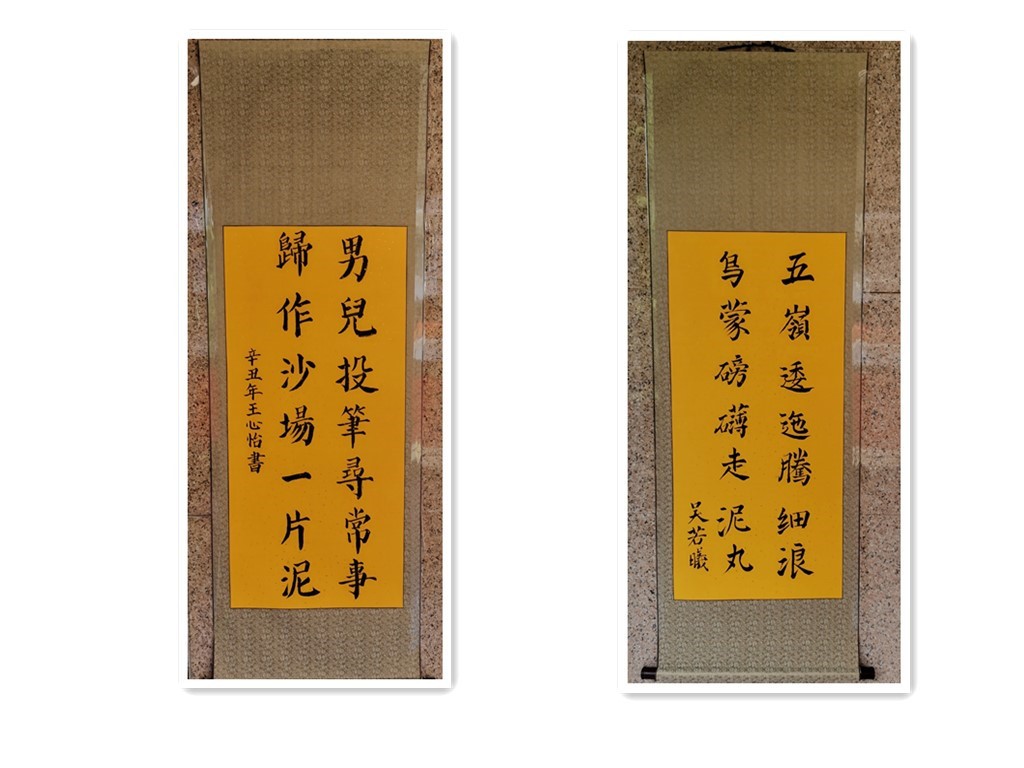 男兒投筆尋常事
歸作沙場一片泥
辛丑年王心怡書
五嶺逶迤騰细浪
烏蒙磅礴走泥丸
吴若曦